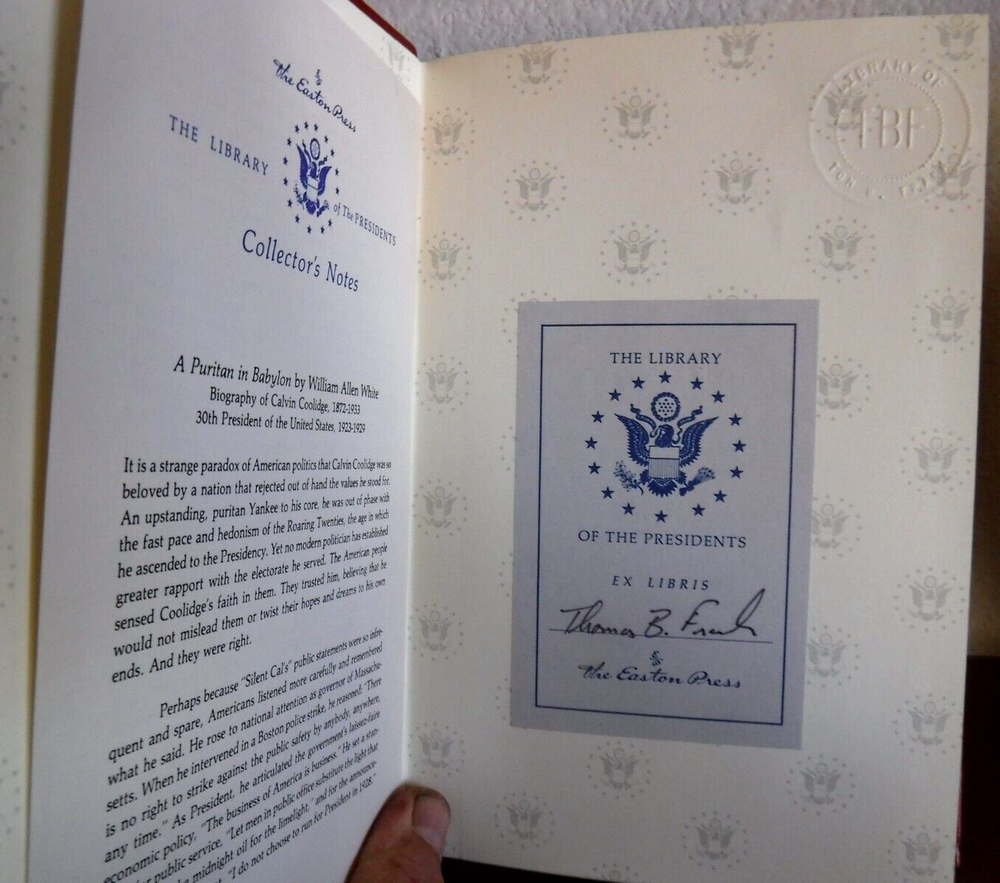 The Easton Press
THE LIBRARY
of The PRESIDENTS
Collector's Notes
A Puritan in Babylon by William Allen White
Biography of Calvin Coolidge, 1872-1933
30th President of the United States, 1923-1929
It is a strange paradox of American politics that Calvin Coolidge was so
beloved by a nation that rejected out of hand the values he stood for.
An upstanding, puritan Yankee to his core, he was out of phase with
the fast pace and hedonism of the Roaring Twenties, the age in which
he ascended to the Presidency. Yet no modern politician has established
greater rapport with the electorate he served. The American people
sensed Coolidge's faith in them. They trusted him, believing that he
would not mislead them or twist their hopes and dreams to his own
ends. And they were right.
Perhaps because "Silent Cal's" public statements were so infre-
quent and spare, Americans listened more carefully and remembered
what he said. He rose to national attention as governor of Massachu-
setts. When he intervened in a Boston police strike, he reasoned: "There
is no right to strike against the public safety by anybody, anywhere,
any time." As President, he articulated the government's laissez-faire
economic policy, "The business of America is business." He set a stan-
public service, "Let men in public office substitute the light that
midnight oil for the limelight," and for the announce-
"I do not choose to run for President in 1928."
LIBRARY OF
TBF
TOM
THE LIBRARY
OF THE PRESIDENTS
EX LIBRIS
Thomas B. Frank
The Easton Press